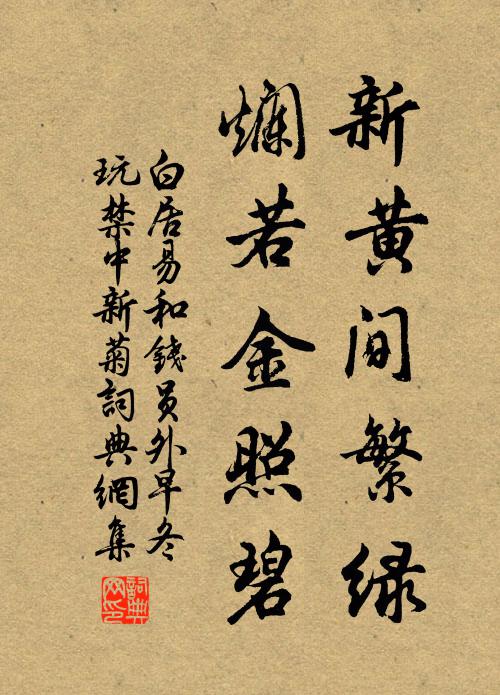 新黄间繁绿
爛若金照碧
白居易和錢员外早冬
玩禁中新菊詞典網集
詞典网印